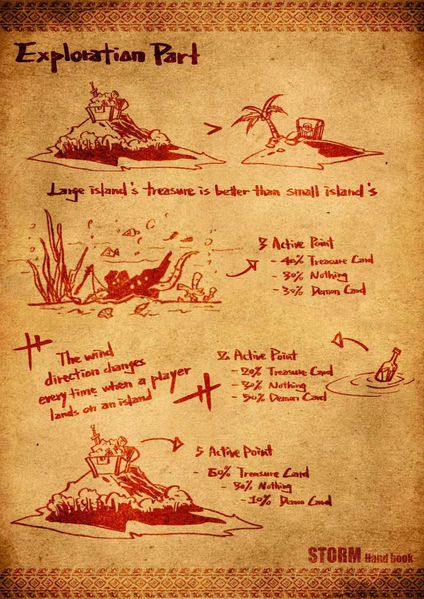 Exploration Part
>
Large island's treasure is better than small island's
3 Active Point
- 40% Treasure Card
- 30% Nothing
- 30% Demon Card
"The wind
direction changes
every time when a player
lands on an island"
2 Active Point
- 20% Treasure Card
- 30% Nothing
- 50% Demon Card
5 Active Point
- 60% Treasure Card
- 30% Nothing
- 10% Demon Card
STORM Hand book